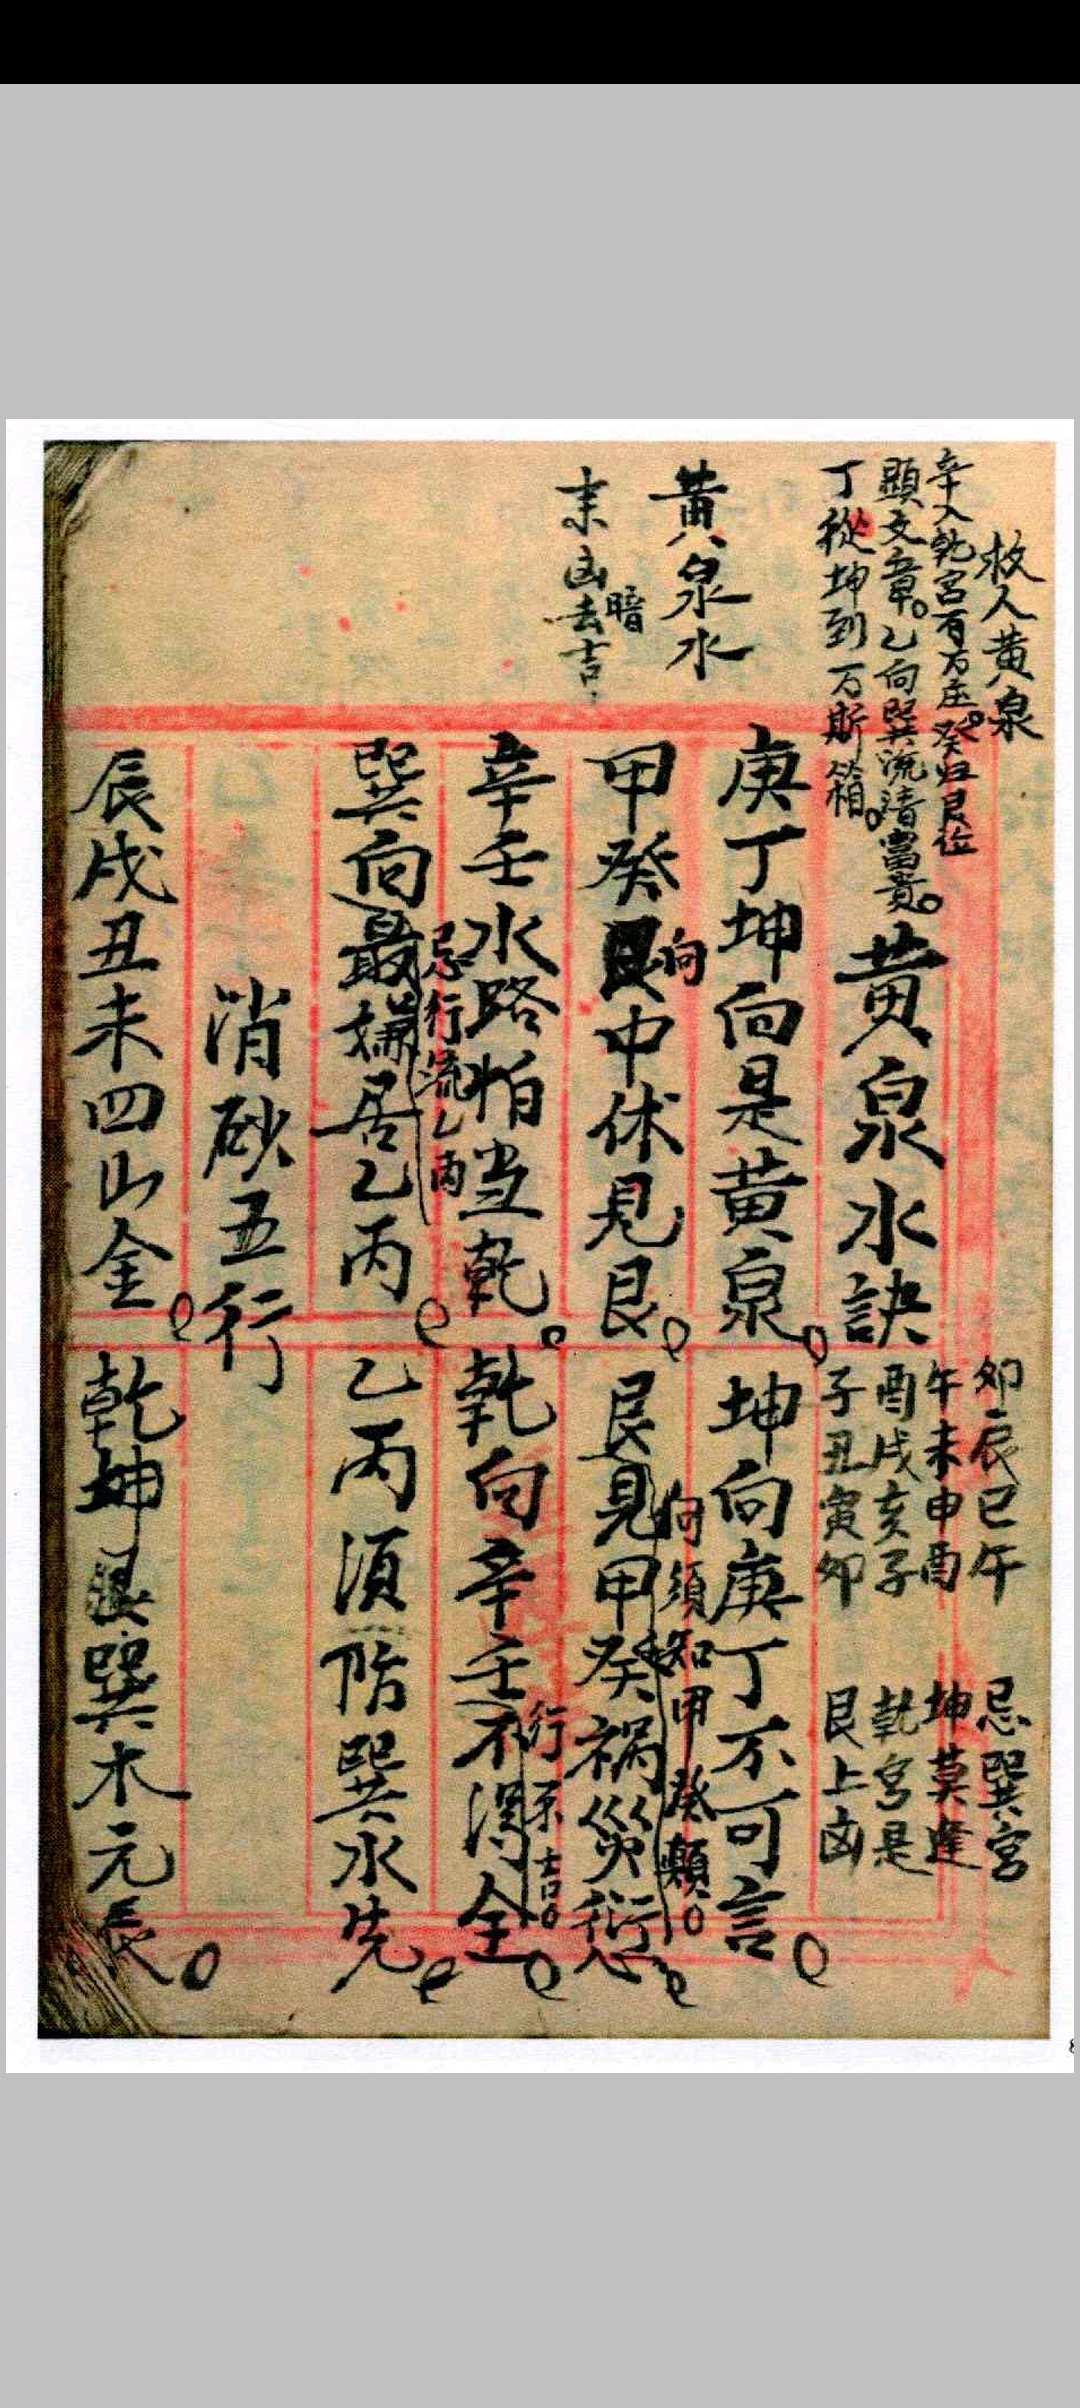 救人黄泉
辛入乾宮百万庄。癸归艮位
顯文章。乙向巽流清富貴。
丁從坤到万斯箱。
黄泉水
来凶去吉
暗
黄泉水訣
卯辰巳午 忌巽宮
午未申酉 坤莫逢
酉戌亥子 乾宮是
子丑寅卯 艮上凶
庚丁坤向是黄泉。坤向庚丁不可言。
甲癸艮中休見艮。艮見甲癸禍災衍。
向
向須知甲癸頬。
辛壬水路怕当乾。乾向辛壬不全。
行 吉。
巽向最嫌居乙丙。乙丙須防巽水先。
忌行流乙丙
消砂五行
辰戌丑未四山金。乾坤艮巽木元辰。